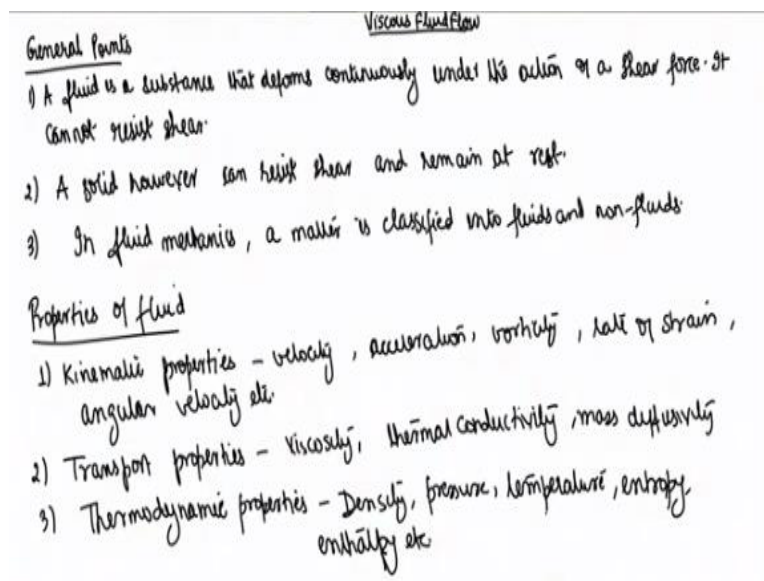 Viscous Fluid Flow
General Points
1) A fluid is a substance that deforms continuously under the action of a shear force. It
cannot resist shear.
2) A solid however can resist shear and remain at rest.
3) In fluid mechanics, a matter is classified into fluids and non-fluids.
Properties of fluid
1) Kinematic properties - velocity, acceleration, vorticity, rate of strain,
angular velocity etc.
2) Transport properties - Viscosity, thermal conductivity, mass diffusivity
3) Thermodynamic properties - Density, pressure, temperature, entropy,
enthalpy etc